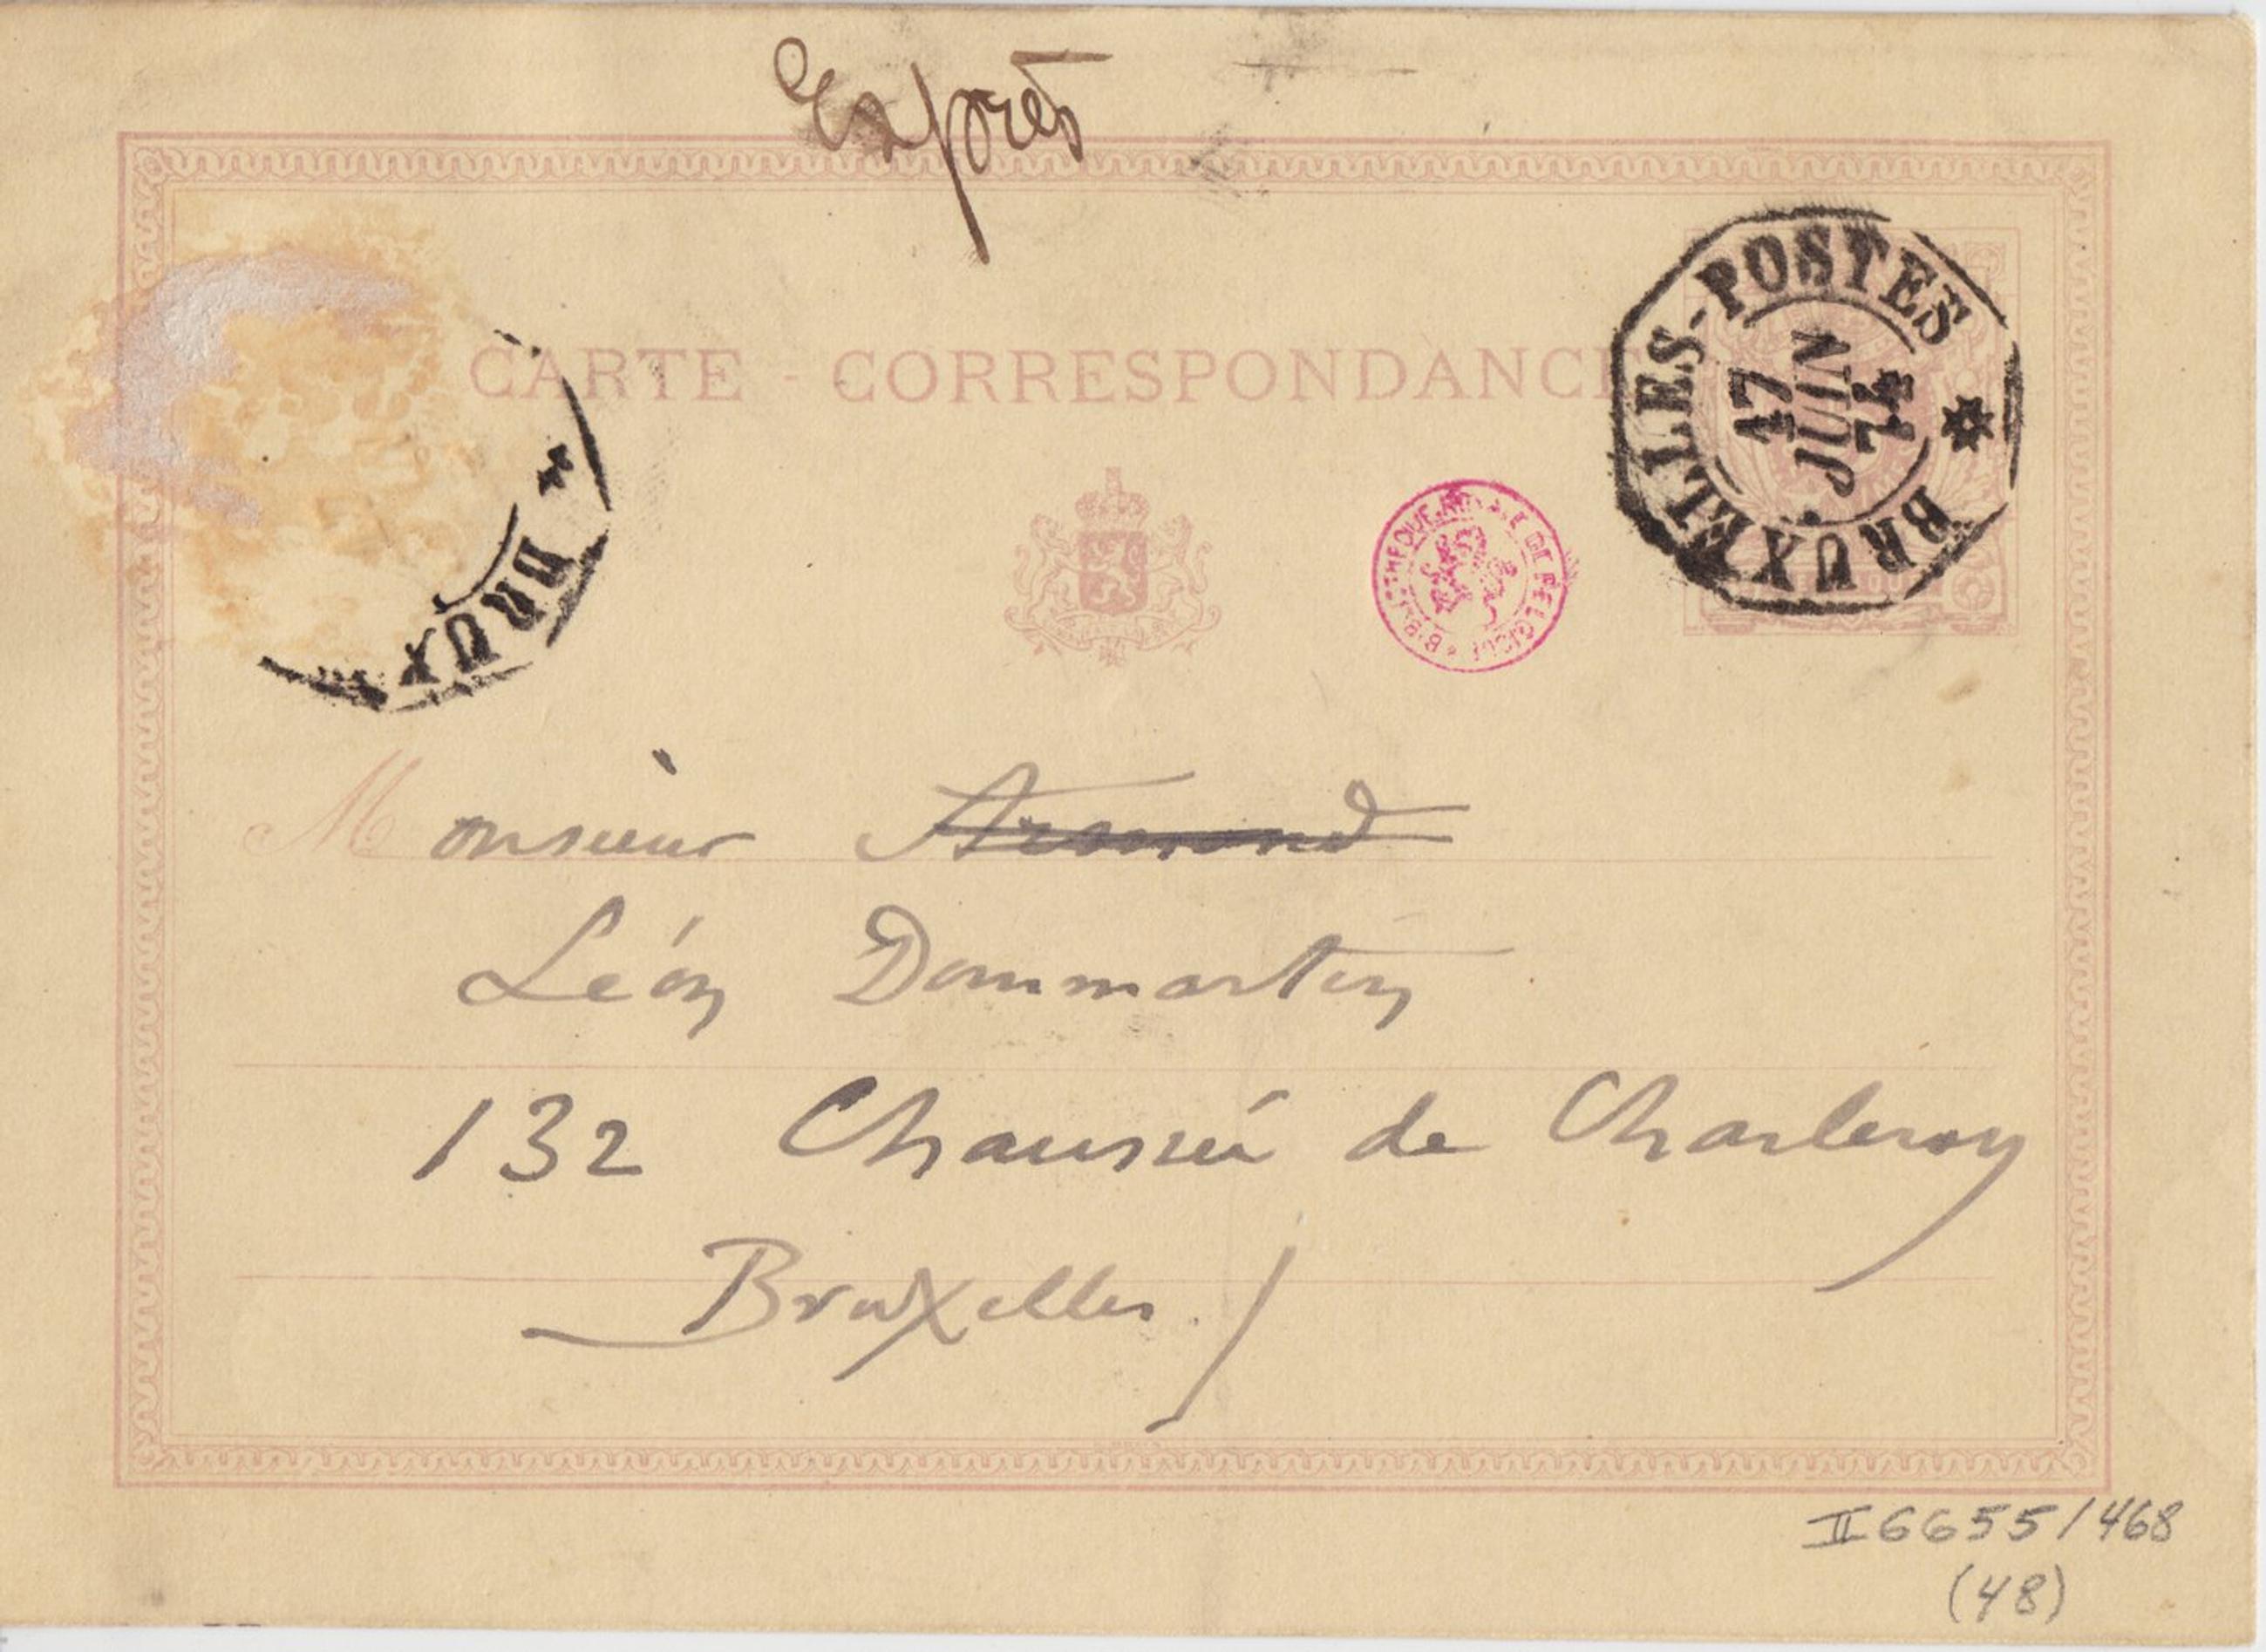 Exprès
CARTE - CORRESPONDANCE
BRUXELLES - POSTES
17
JUIN
BRUX
BIBLIOTHEQUE ROYALE DE BELGIQUE
Monsieur Armand
Léon Dommartin
132 Chaussée de Charleroy
Bruxelles.
II 6655/468
(48)